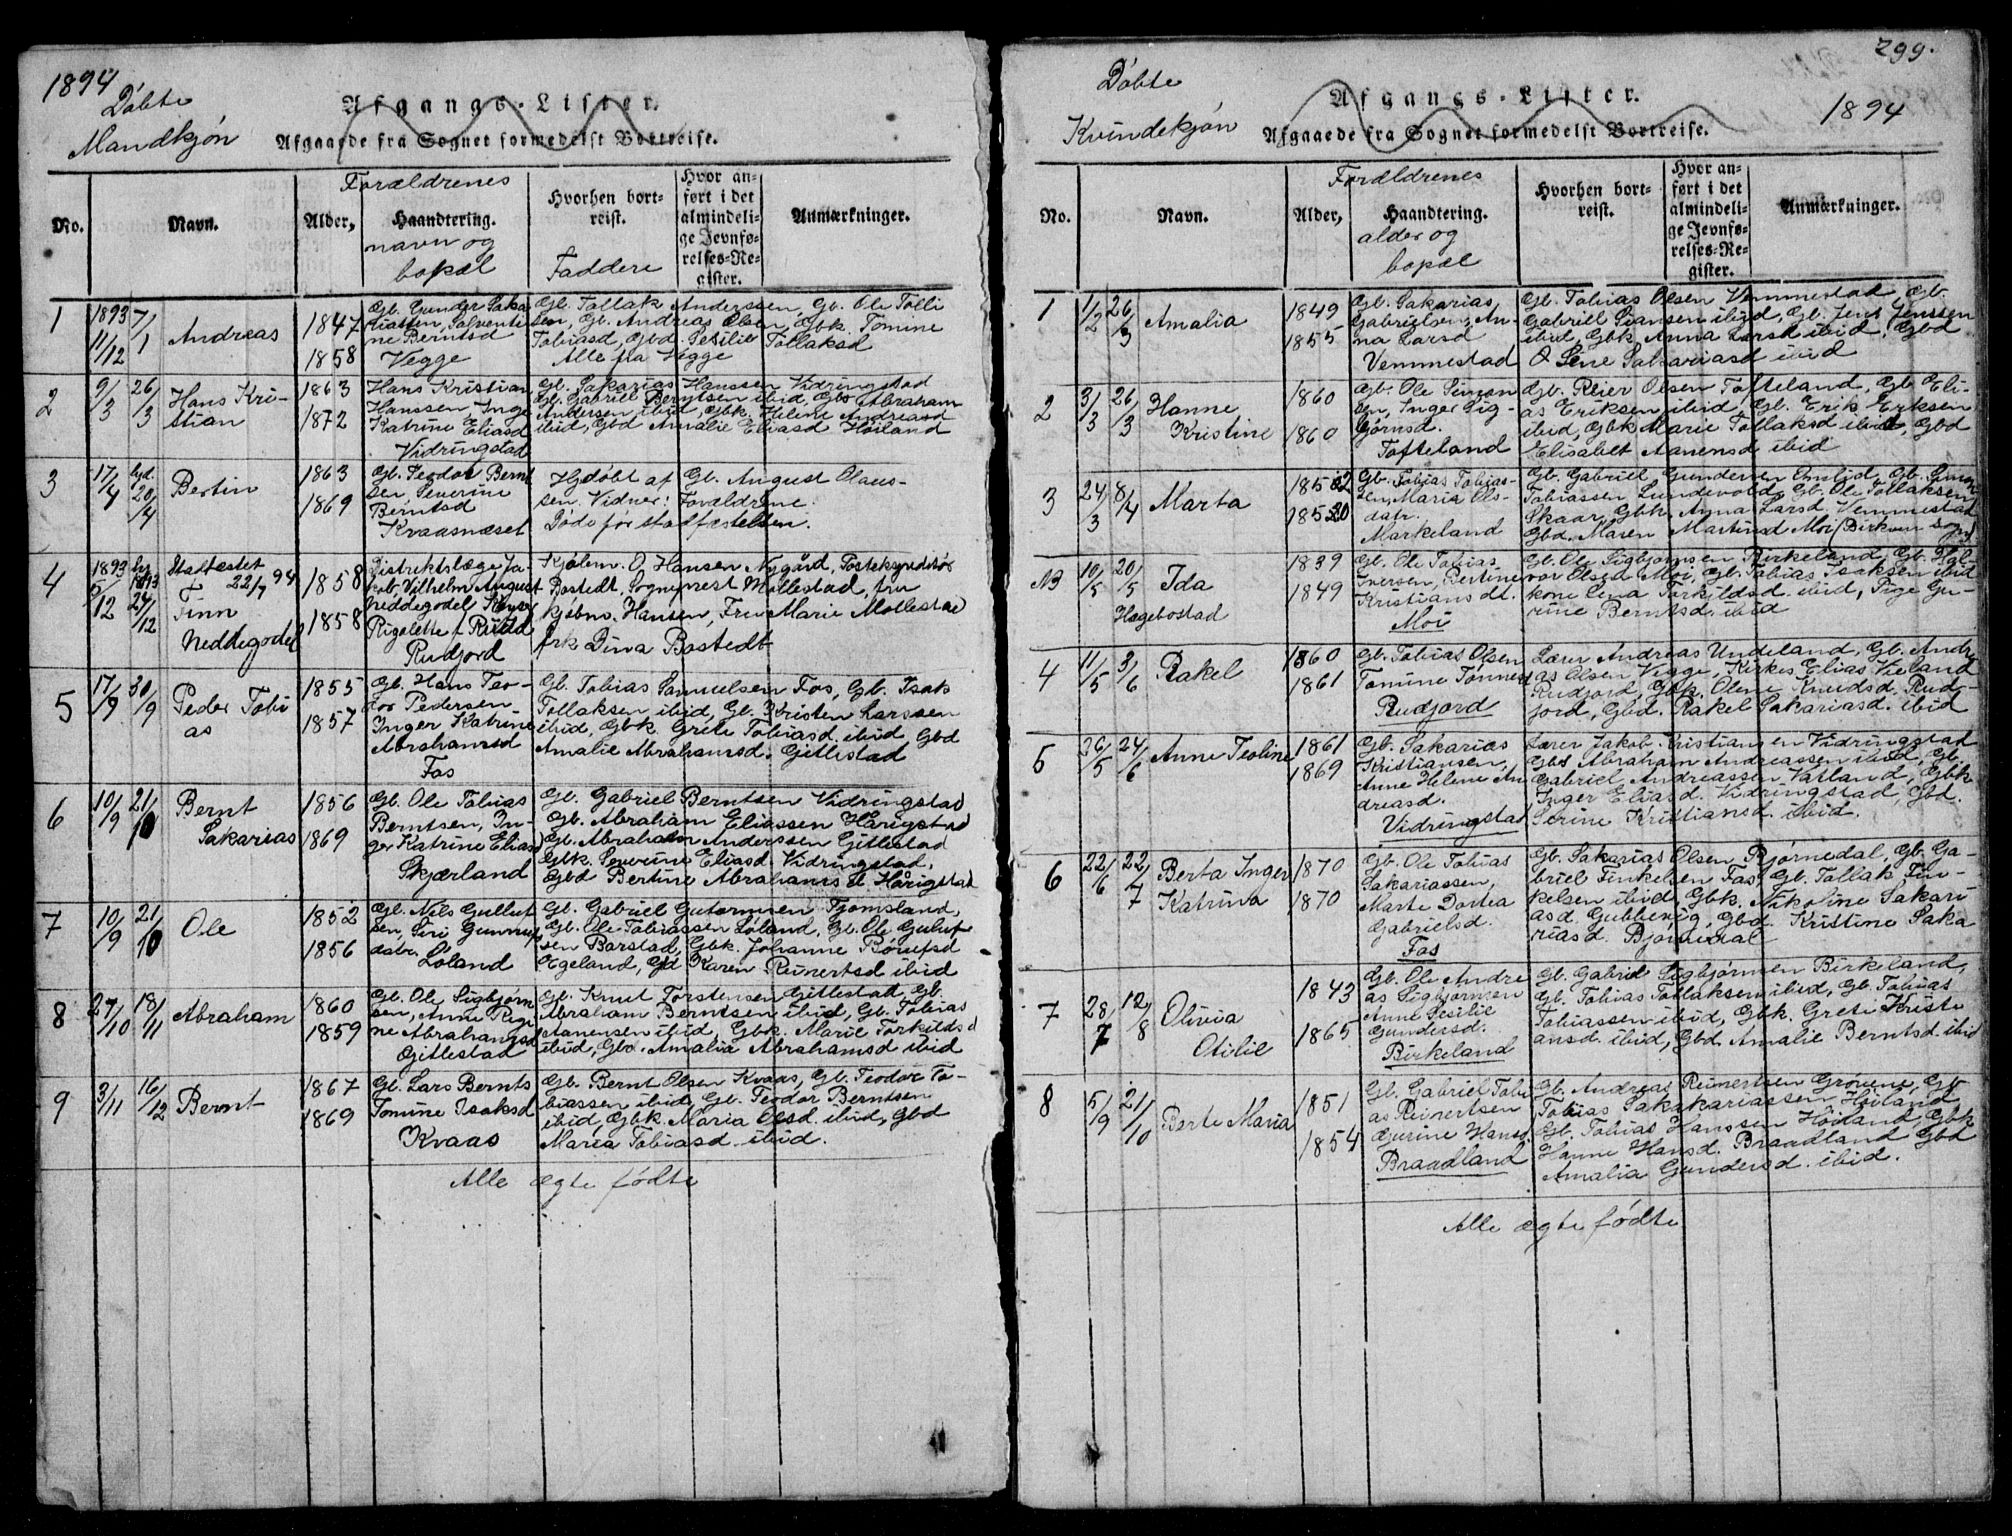 1894
Döbte
Mandkjön
Afgangs-Lister.
Afgaaede fra Sognet formedelst Bortreise.
No.
Navn.
Alder,
Forældrenes
Haandtering.
navn og
bopæl
Hvorhen bort-
reist.
Faddere
Hvor an-
ført i det
almindeli-
ge Jevnfø-
relses-Re-
gister.
Anmærkninger.
1
1893 7/1
11/12
Andreas
1847
1858
Gb. Gunder Saka
riassen, Salventi
ne Berntsd
Vegge
Gb. Tollak Anderssen, Gb. Ole Tolli
sen, Gb. Andreas Olsen, Gbk. Tomine
Tobiasd, Gbd. Sesilie Tollaksd
Alle fra Vegge
2
9/3 26/3
Hans Kri-
stian
1863
1872
Hans Kristian
Hanssen, Inger
Katrine Eliasd
Vidringstad
Gb. Sakarias Hanssen Vidringstad
Gb. Gabriel Berntsen ibid, Gbs Abraham
Andersen ibid, Gbk. Helene Andreasd
ibid, Gbd Amalie Eliasd Høiland
3
17/4 hjd. 20/4
Bertin
1863
1869
Gb. Teodor Bernt
sen, Severine
Berntsd
Kvaasnæset
Hjdöbt af Gb. August Olaus-
sen. Vidner: Forældrene.
Döde för stadfæstelsen.
4
1893 hj. 1893
5/12 24/12
Stadfæstet
22/7 94
Finn
Neddegodel
1858
1858
Distriktslæge Ja-
kob Vilhelm August
Neddegodel,
Rigolette f. Ruud
Rudjord
Kjøbm. O. Hansen Nygård, Postekspeditör
Bostedt, Sogneprest Mollestad, fru
Kjöbm. Hansen, Fru Marie Mollestad
frk Dina Bostedt
5
17/9 30/9
Peder Tobi
as
1855
1857
Gb. Hans Teo-
dor Pedersen
Inger Katrine
Abrahamsd
Fos
Gb. Tobias Samuelsen Fos, Gb. Isak
Tollaksen ibid, Gb. Kristen Larssen
ibid, Gbk. Grete Tobiasd. ibid, Gbd
Amalie Abrahamsd. Gitlestad
6
10/9 21/10
Bernt
Sakarias
1856
1869
Gb. Ole Tobias
Berntsen, In-
ger Katrine Eliasd
Skjærland
Gb. Gabriel Berntsen Vidringstad
Gb. Abraham Eliassen Hårigstad
Gb. Abraham Anderssen Gitlestad
Gbk. Severine Eliasd. Vidringstad,
Gbd Bertine Abrahamsd Hårigstad
7
10/9 21/10
Ole
1852
1856
Gb. Nils Gullut
sen, Siri Gunnufs
datr.
Loland
Gb. Gabriel Gutormsen Tjomsland,
Gb. Ole Tobiassen Loland, Gb. Ole Gulut
sen Barstad, Gbk. Johanne Börufsd
Egeland, Gd Karen Reinertsd ibid
8
27/10 18/11
Abraham
1860
1859
Gb. Ole Sigbjörn
sen, Anne Regi
ne Abrahamsd
Gitlestad
Gb. Knut Torstensen Gitlestad, Gb
Abraham Berntsen ibid, Gb. Tobias
Stanensen ibid, Gbk. Marie Torkildsd
ibid, Gbd. Amalia Abrahamsd ibid
9
3/11 16/12
Bernt
1867
1869
Gb. Lars Bernts
Tomine Isaksd
Kvaas
Gb. Bernt Olsen Kvaas, Gb. Teodor To-
biassen ibid, Gb. Teodor Berntsen
ibid, Gbk. Maria Olsd. ibid, Gbd
Maria Tobiasd ibid.
Alle ægte födte
299.
Döbte
Kvindekjön
Afgangs-Lister.
1894
Afgaaede fra Sognet formedelst Bortreise.
No.
Navn.
Alder,
Forældrenes
Haandtering.
alder og
bopæl
Hvorhen bort-
reist.
Hvor an-
ført i det
almindeli-
ge Jevnfø-
relses-Re-
gister.
Anmærkninger.
1
1/2 26/3
Amalia
1849
1855
Gb. Sakarias
Gabrielsen, An-
na Larsd
Vemmestad
Gb. Tobias Olsen Vemmestad, Gb.
Gabriell Siansen ibid, Gb. Jens Jenssen
ibid, Gbk Anna Larsd ibid, Gbd
O. Lene Sakariasd ibid
2
3/3 26/3
Hanne
Kristine
1860
1860
Gb. Ole Simon
sen, Inger Sig-
björnsd.
Tofteland
Gb. Reier Olsen Tofteland, Gb Eli-
as Eriksen ibid, Gb. Erik Erksen
ibid, Gbk Marie Tollaksd ibid, Gbd
Elisabet Aanensd ibid
3
24/3 8/4
Marta
Gb. Tobias Tobias-
sen, Maria Ols-
datr.
Markeland
Gb. Gabriel Gundersen Omlid, Gb. Simon
Tobiassen Lundevold, Gb. Ole Tollaksen
Skaar, Gbk. Anna Larsd. Vemmestad
Gbd. Maren Martinsd Moi (Birkren sogn)
NB
10/5 20/5
Ida
Hægebostad
1839
1849
Gb. Ole Tobias
Iversen, Bertine
Kristians dt.
Moi
Gb. Ole Sigbjornsen Birkeland, Gb. Hal-
vor Olsen Moi, Gb. Tobias Isaksen ibid
kone Lena Torkildsd. ibid, Pige Gu-
rine Berntsd. ibid
4
11/5 3/6
Rakel
1860
1861
Gb. Tobias Olsen
Tomine Tönnesd
Rudjord
Lærer Andreas Undeland, Gb. Andre
as Olsen Vegge, Kirkes. Elias Vieland
Rudjord, Gbk. Olene Knudsd. Rud-
jord, Gbd. Rakel Sakariasd. ibid
5
26/5 24/6
Anne Teoline
1861
1869
Gb. Sakarias
Kristiansen,
Anne Helene An
dreasd.
Vidringstad
Lærer Jakob Kristiansen Vidringstad
Gbs Abraham Andreassen ibid, Gb.
Gabriel Andreassen Vatland, Gbk
Inger Eliasd. Vidringstad, Gbd.
Serine Kristiansd. ibid.
6
22/6 22/7
Berta Inger
Katrina
1870
1870
Gb. Ole Tobias
Sakariassen,
Marte Dortea
Gabrielsd.
Fos
Gb. Sakarias Olsen Bjørnedal, Gb. Ga-
briel Finkelsen Fos, Gb. Tollak Fin-
kelsen ibid, Gbk. Nikoline Sakari
asd. Gubbenig, Gbd. Kristine Saka
riasd. Bjørnedal
7
28/7 12/8
Olivia
Otilie
1843
1865
Gb. Ole Andre
as Sigbjørnsen
Anne Sesilie
Gundersd.
Birkeland
Gb. Gabriel Sigbjørnsen Birkeland,
Gb. Tobias Tollaksen ibid, Gb. Tobias
Tobiassen ibid, Gbk. Grete Kristi
ansd. ibid, Gbd Amalie Berntsd ibid
8
5/9 21/10
Berte Maria
1851
1854
Gb. Gabriel Tobi
as Reinertsen
Gurine Hansd.
Braadland
Gb. Andreas Reinertsen Grönene, Gb
Tobias Sakakariassen Høiland
Gb. Tobias Hanssen Höiland, Gbk
Hanne Hansd. Braadland Gbd
Amalia Gundersd. ibid.
Alle ægte födte